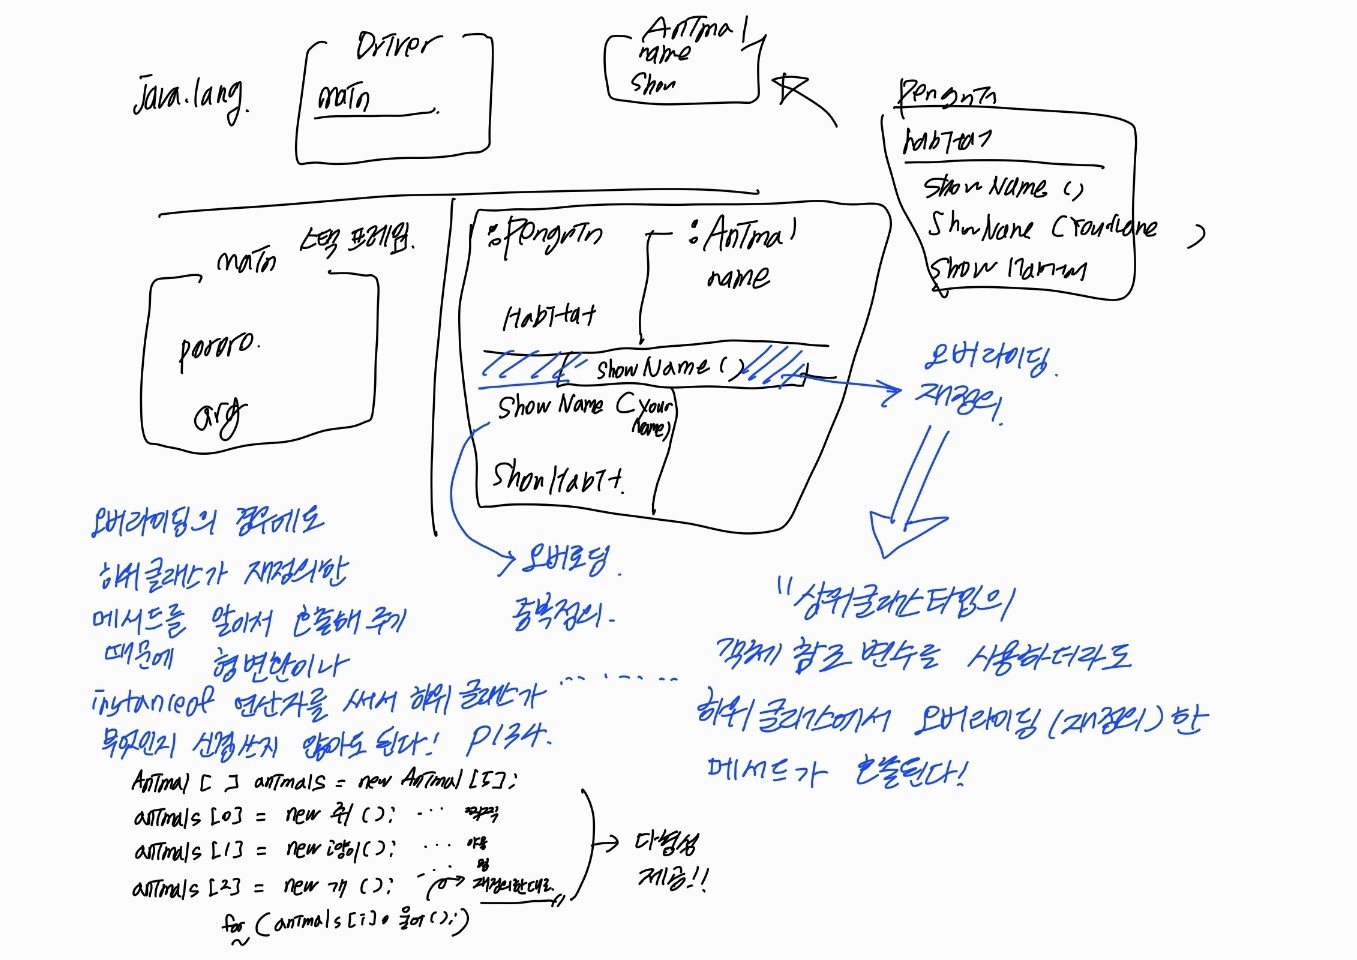 java.lang.
Driver
main
Animal
name
Show
Penguin
habitat
Show Name ()
Show Name (YourName )
Show Habitat
스택 프레임.
main
pororo.
arg
:Penguin
:Animal
name
Habitat
Show Name ()
Show Name (Your
Name)
Show Habit.
오버라이딩.
재정의.
오버로딩.
중복정의.
오버라이딩의 경우에도
하위클래스가 재정의한
메서드를 알아서 호출해 주기
때문에 형변환이나
instanceof 연산자를 써서 하위 클래스가 .......
무엇인지 신경쓰지 않아도 된다! P134.
"상위클래스타입의
객체 참조 변수를 사용하더라도
하위 클래스에서 오버라이딩(재정의)한
메서드가 호출된다!
Animal [ ] animals = new Animal [5];
animals [0] = new 쥐 (); ... 찍찍
animals [1] = new 고양이(); ... 야옹
animals [2] = new 개 (); ... 멍
재정의한대로
for (animals [i]. 울어();)
다형성
제공!!